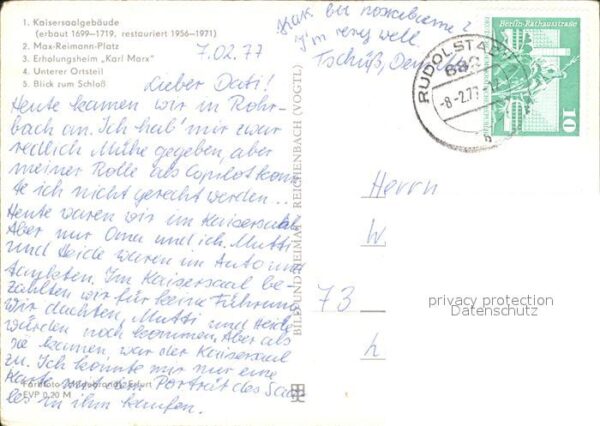 1. Kaisersaalgebäude
(erbaut 1699–1719, restauriert 1956–1971)
2. Max-Reimann-Platz
3. Erholungsheim „Karl Marx"
4. Unterer Ortsteil
5. Blick zum Schloß
7.02.77
Lieber Dati!
Heute kamen wir in Rohr-
bach an. Ich hab' mir zwar
redlich Mühe gegeben, aber
meiner Rolle als Copilot konn-
te ich nicht gerecht werden..
Heute waren wir im Kaisersaal.
Aber nur Oma und ich. Mutti
und Heide waren im Auto und
. Im Kaisersaal be-
zahlten wir für keine Führung
wir dachten, Mutti und Heide
würden noch kommen. Aber als
sie kamen, war der Kaisersaal
zu. Ich konnte mir nur eine
Karte mit dem Porträt des Saa-
les in ihm kaufen.
EVP 0,20 M
BILD UND HEIMAT REICHENBACH (VOGTL)
I'm very well.
Tschüß,
RUDOLSTADT
682
-8-2.77-12
Berlin-Rathausstraße
10
Herrn
W
73
h
privacy protection
Datenschutz